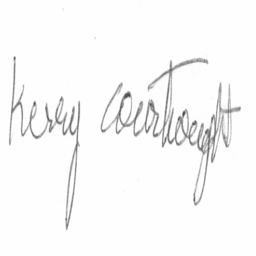 Kerry Courthought